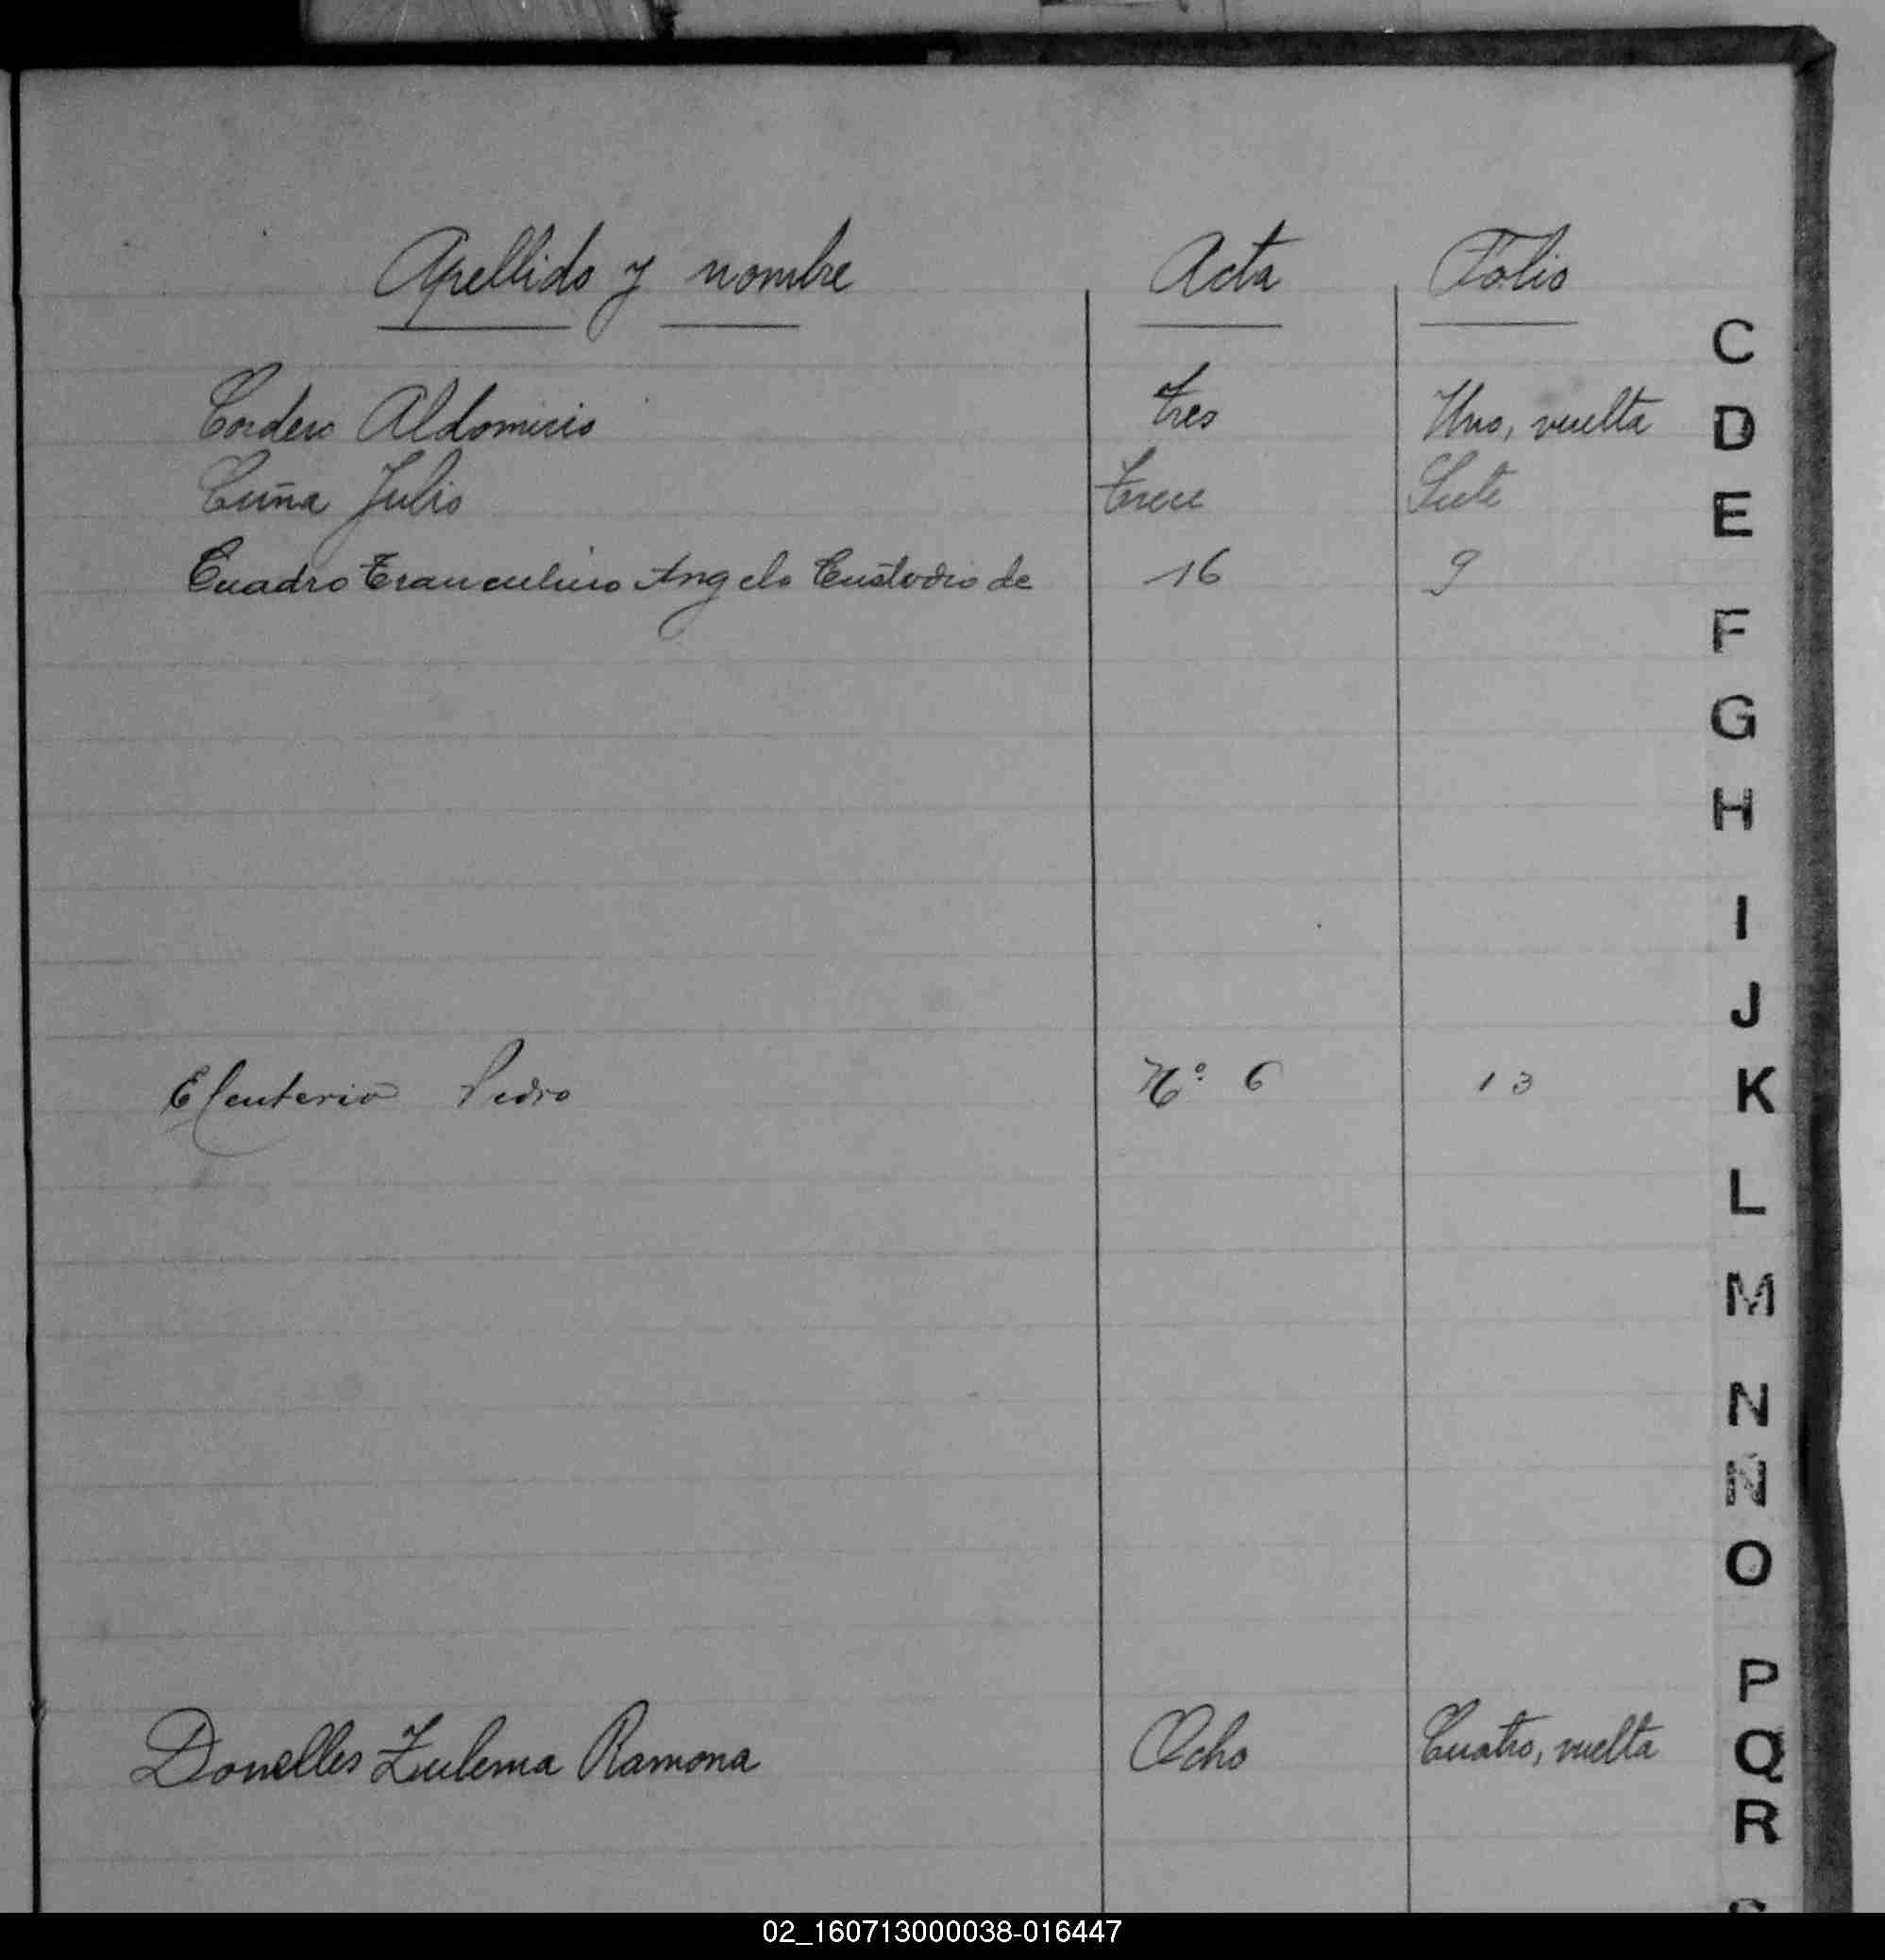 Apellido y nombre Acta Folio
Cordero Aldomicio Tres Uno, vuelta
Cuña Julio Trece Siete
Cuadro Tranculino Angelo Custodio de 16 9
Eleuterio Pedro Nº 6 13
Donelles Zulema Ramona Ocho Cuatro, vuelta
C
D
E
F
G
H
I
J
K
L
M
N
N
O
P
Q
R
02_160713000038-016447